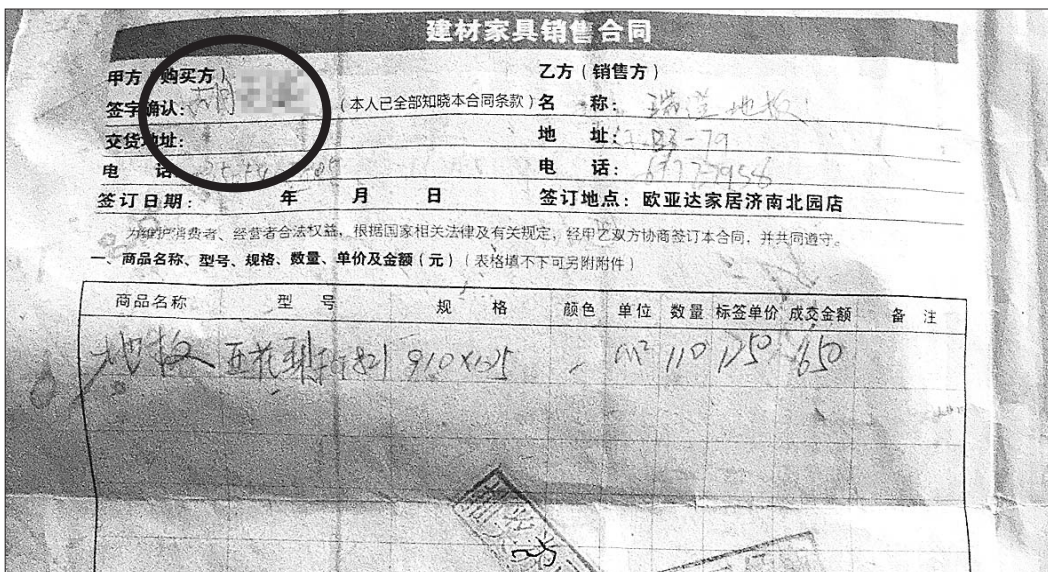 建材家具销售合同
甲方（购买方） 乙方（销售方）
签字确认： （本人已全部知晓本合同条款） 名 称： 地板
交货地址： 地 址： -79
电 话： 电 话：
签订日期： 年 月 日 签订地点：欧亚达家居济南北园店
为维护消费者、经营者合法权益，根据国家相关法律及有关规定，经甲乙双方协商签订本合同，并共同遵守。
一、商品名称、型号、规格、数量、单价及金额（元）（表格填不下可另附附件）
商品名称 型 号 规 格 颜色 单位 数量 标签单价 成交金额 备 注
地板 910×125 m² 110 1250 650